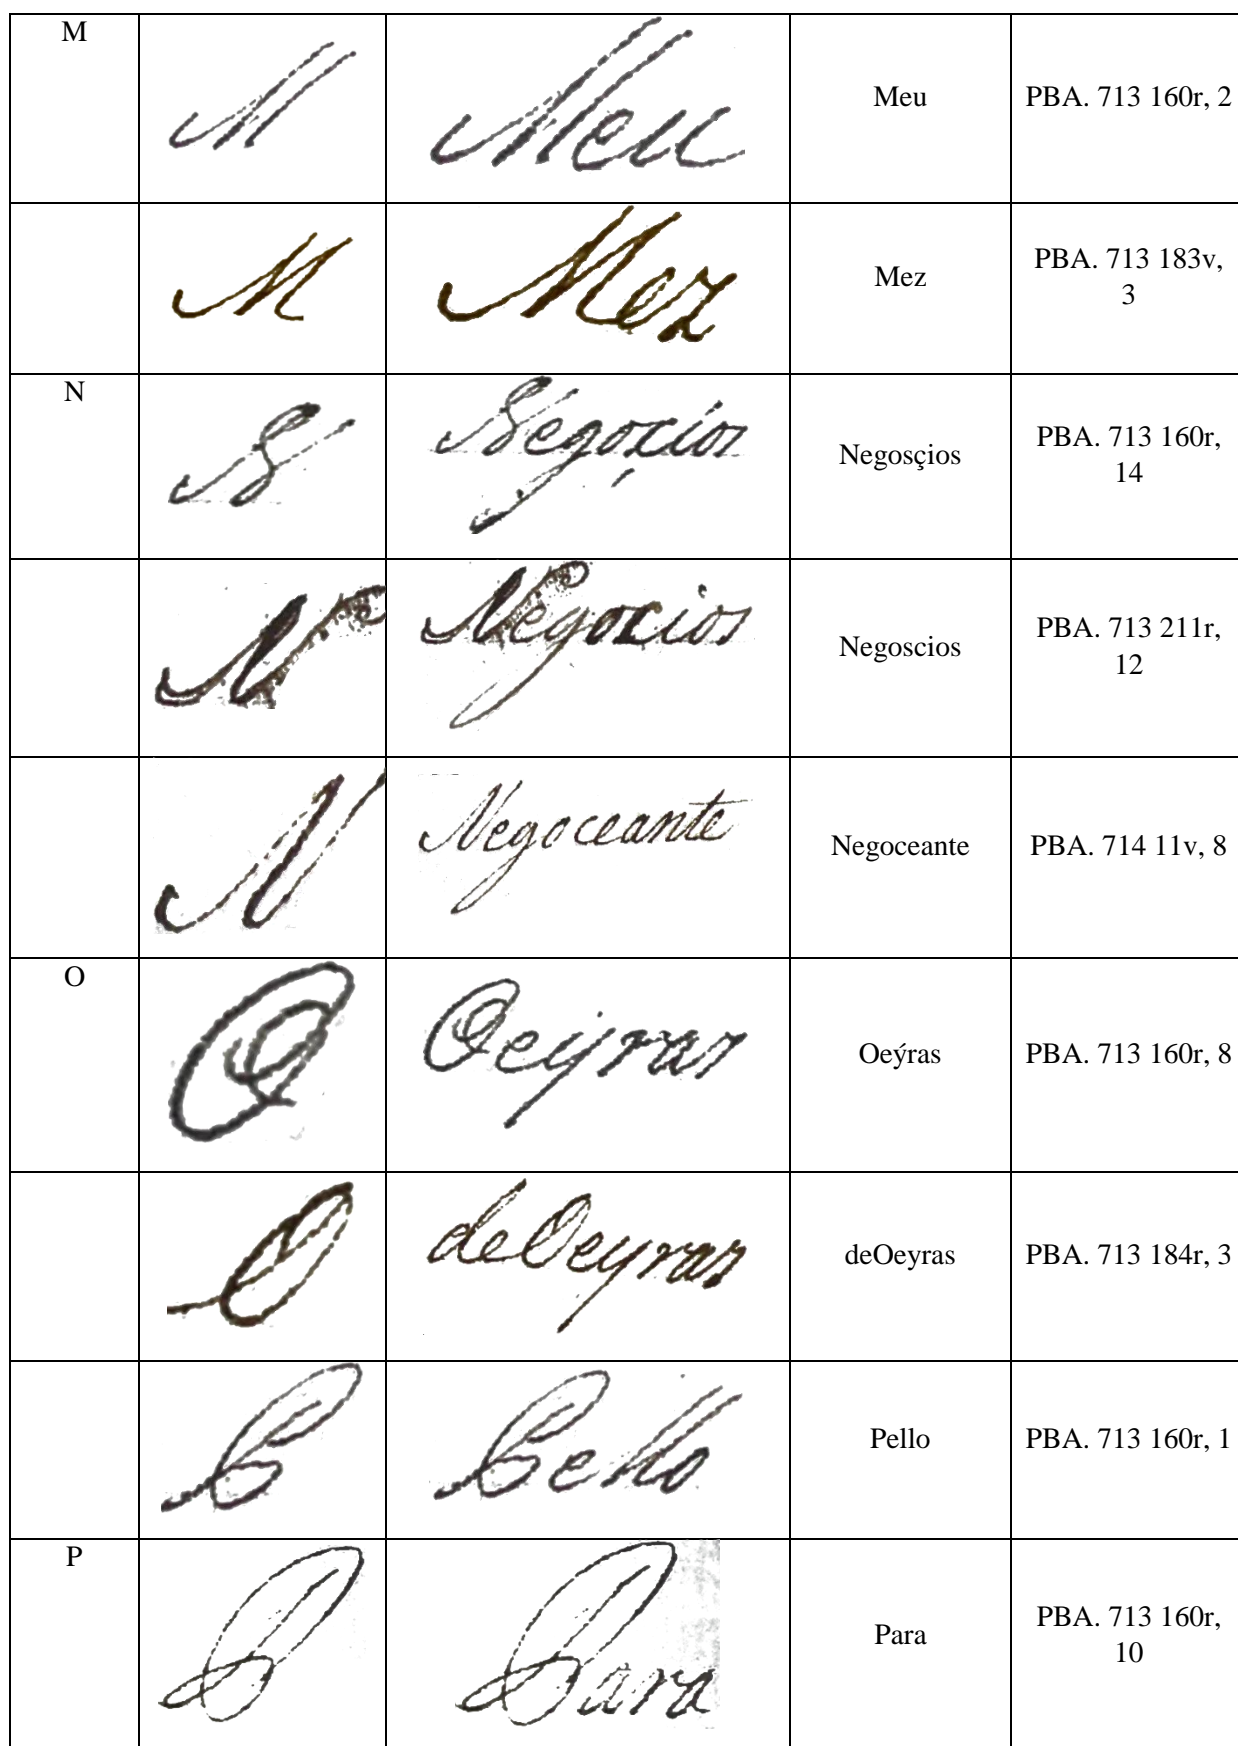 M M Meu Meu PBA. 713 160r, 2
M Mez Mez PBA. 713 183v,
3
N N Negoçios Negosçios PBA. 713 160r,
14
N Negocios Negoscios PBA. 713 211r,
12
N Negoceante Negoceante PBA. 714 11v, 8
O O Oeýras Oeýras PBA. 713 160r, 8
O deOeyras deOeyras PBA. 713 184r, 3
P Pello Pello PBA. 713 160r, 1
P P Para Para PBA. 713 160r,
10